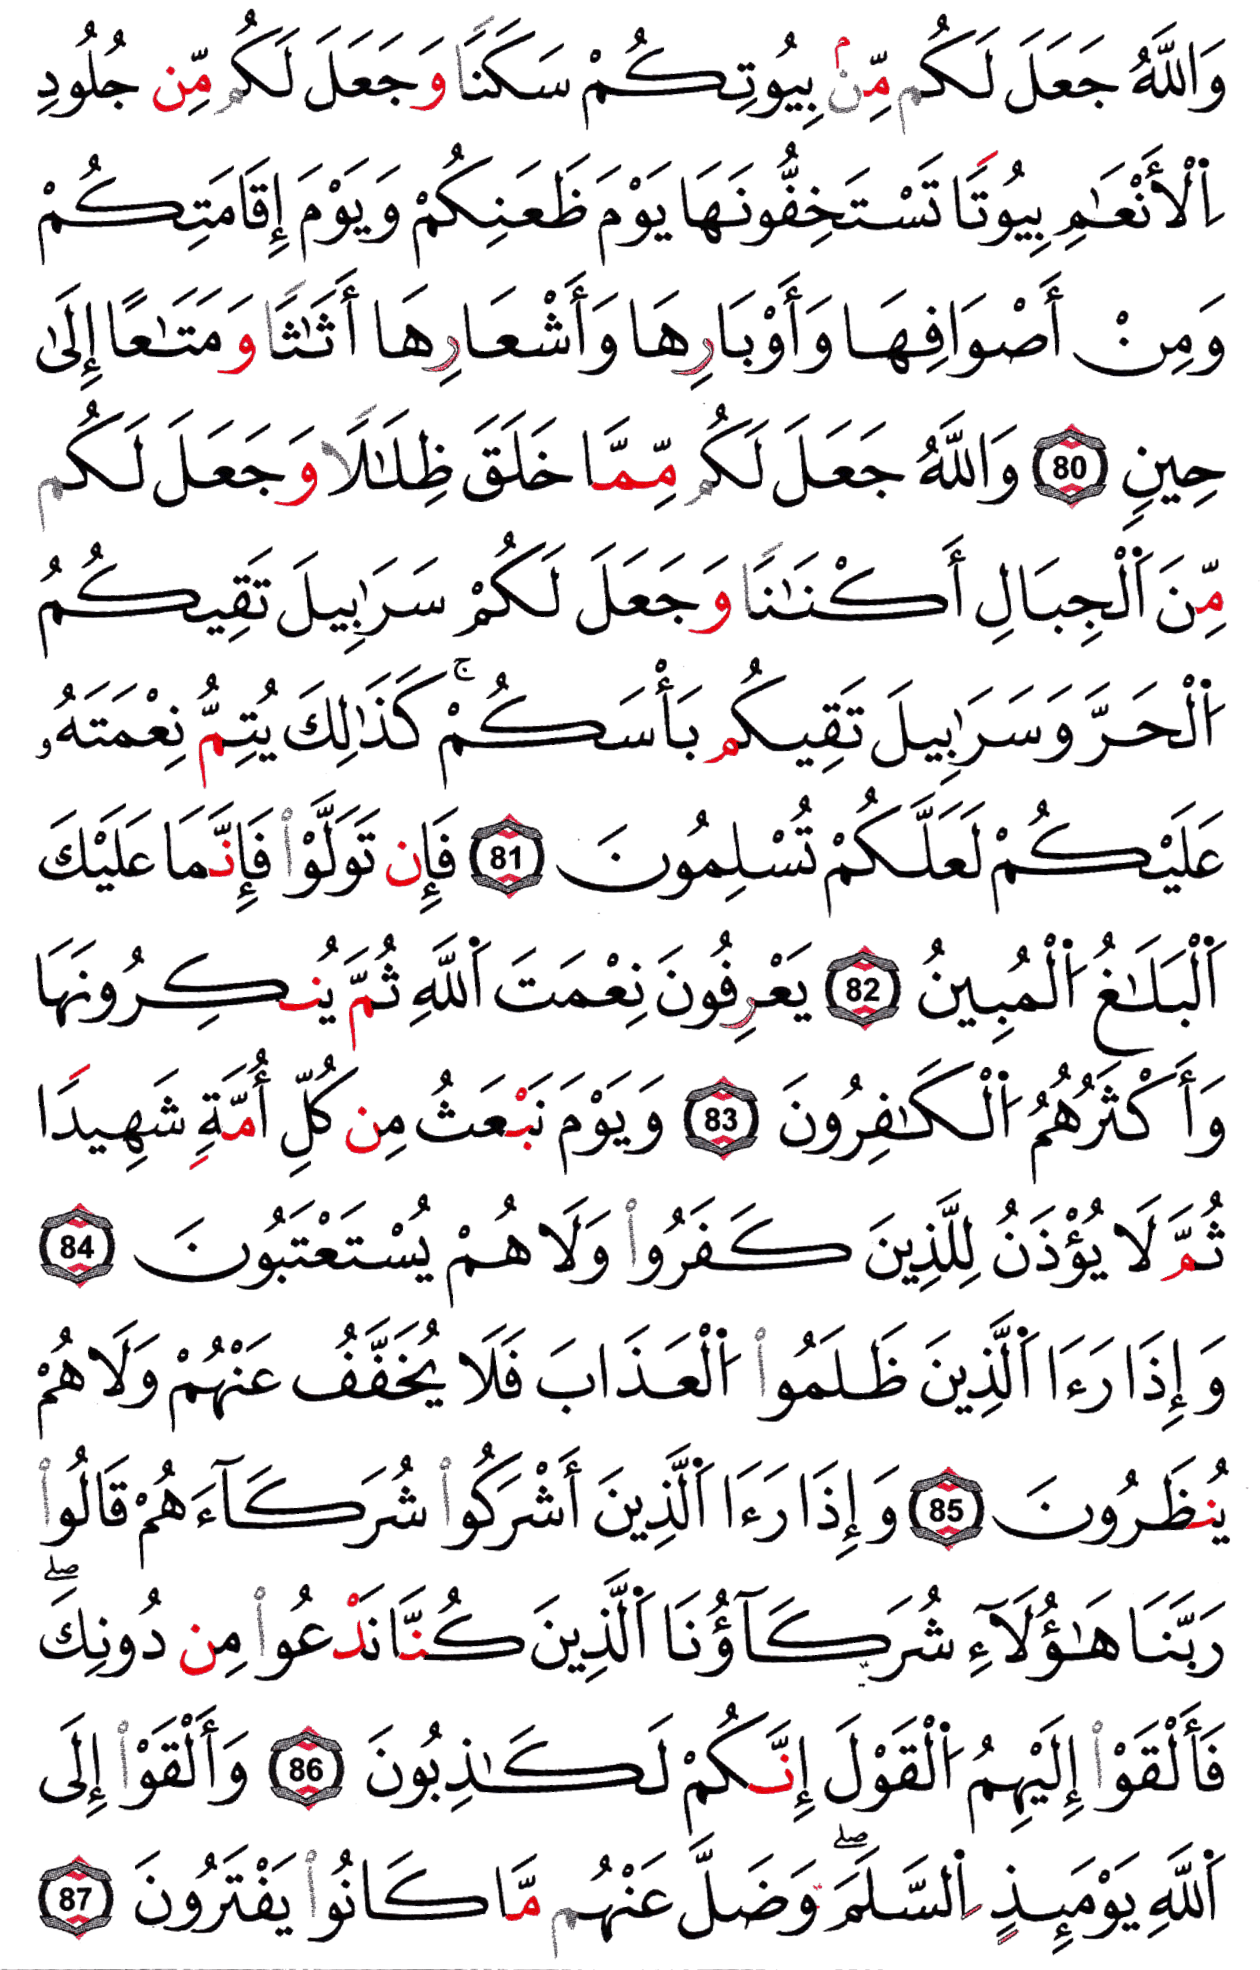 وَاللَّهُ جَعَلَ لَكُم مِّنۢ بِيُوتِكُمْ سَكَنًا وَجَعَلَ لَكُم مِّن جُلُودِ
اِ۬لْأَنْعَٰمِ بِيُوتًا تَسْتَخِفُّونَهَا يَوْمَ ظَعَنِكُمْ وَيَوْمَ إِقَامَتِكُمْ
وَمِنْ أَصْوَافِهَا وَأَوْبَارِهَا وَأَشْعَارِهَا أَثَٰثًا وَمَتَٰعًا إِلَىٰ
حِينٍ 80 وَاللَّهُ جَعَلَ لَكُم مِّمَّا خَلَقَ ظِلَٰلًا وَجَعَلَ لَكُم
مِّنَ اَ۬لْجِبَالِ أَكْنَٰنًا وَجَعَلَ لَكُمْ سَرَٰبِيلَ تَقِيكُمُ
اُ۬لْحَرَّ وَسَرَٰبِيلَ تَقِيكُم بَأْسَكُمْۚ كَذَٰلِكَ يُتِمُّ نِعْمَتَهُۥ
عَلَيْكُمْ لَعَلَّكُمْ تُسْلِمُونَ 81 فَإِن تَوَلَّوْا۟ فَإِنَّمَا عَلَيْكَ
اَ۬لْبَلَٰغُ اُ۬لْمُبِينُ 82 يَعْرِفُونَ نِعْمَتَ اَ۬للَّهِ ثُمَّ يُنكِرُونَهَا
وَأَكْثَرُهُمُ اُ۬لْكَٰفِرُونَ 83 وَيَوْمَ نَبْعَثُ مِن كُلِّ أُمَّةٍ شَهِيدًا
ثُمَّ لَا يُؤْذَنُ لِلَّذِينَ كَفَرُوا۟ وَلَا هُمْ يُسْتَعْتَبُونَ 84
وَإِذَا رَءَا اَ۬لَّذِينَ ظَلَمُوا۟ اُ۬لْعَذَابَ فَلَا يُخَفَّفُ عَنْهُمْ وَلَا هُمْ
يُنظَرُونَ 85 وَإِذَا رَءَا اَ۬لَّذِينَ أَشْرَكُوا۟ شُرَكَآءَهُمْ قَالُوا۟
رَبَّنَا هَٰؤُلَآءِ شُرَكَآؤُنَا اَ۬لَّذِينَ كُنَّا نَدْعُوا۟ مِن دُونِكَۖ
فَأَلْقَوْا۟ إِلَيْهِمُ اُ۬لْقَوْلَ إِنَّكُمْ لَكَٰذِبُونَ 86 وَأَلْقَوْا۟ إِلَى
اَ۬للَّهِ يَوْمَئِذٍ اِ۬لسَّلَمَۖ وَضَلَّ عَنْهُم مَّا كَانُوا۟ يَفْتَرُونَ 87